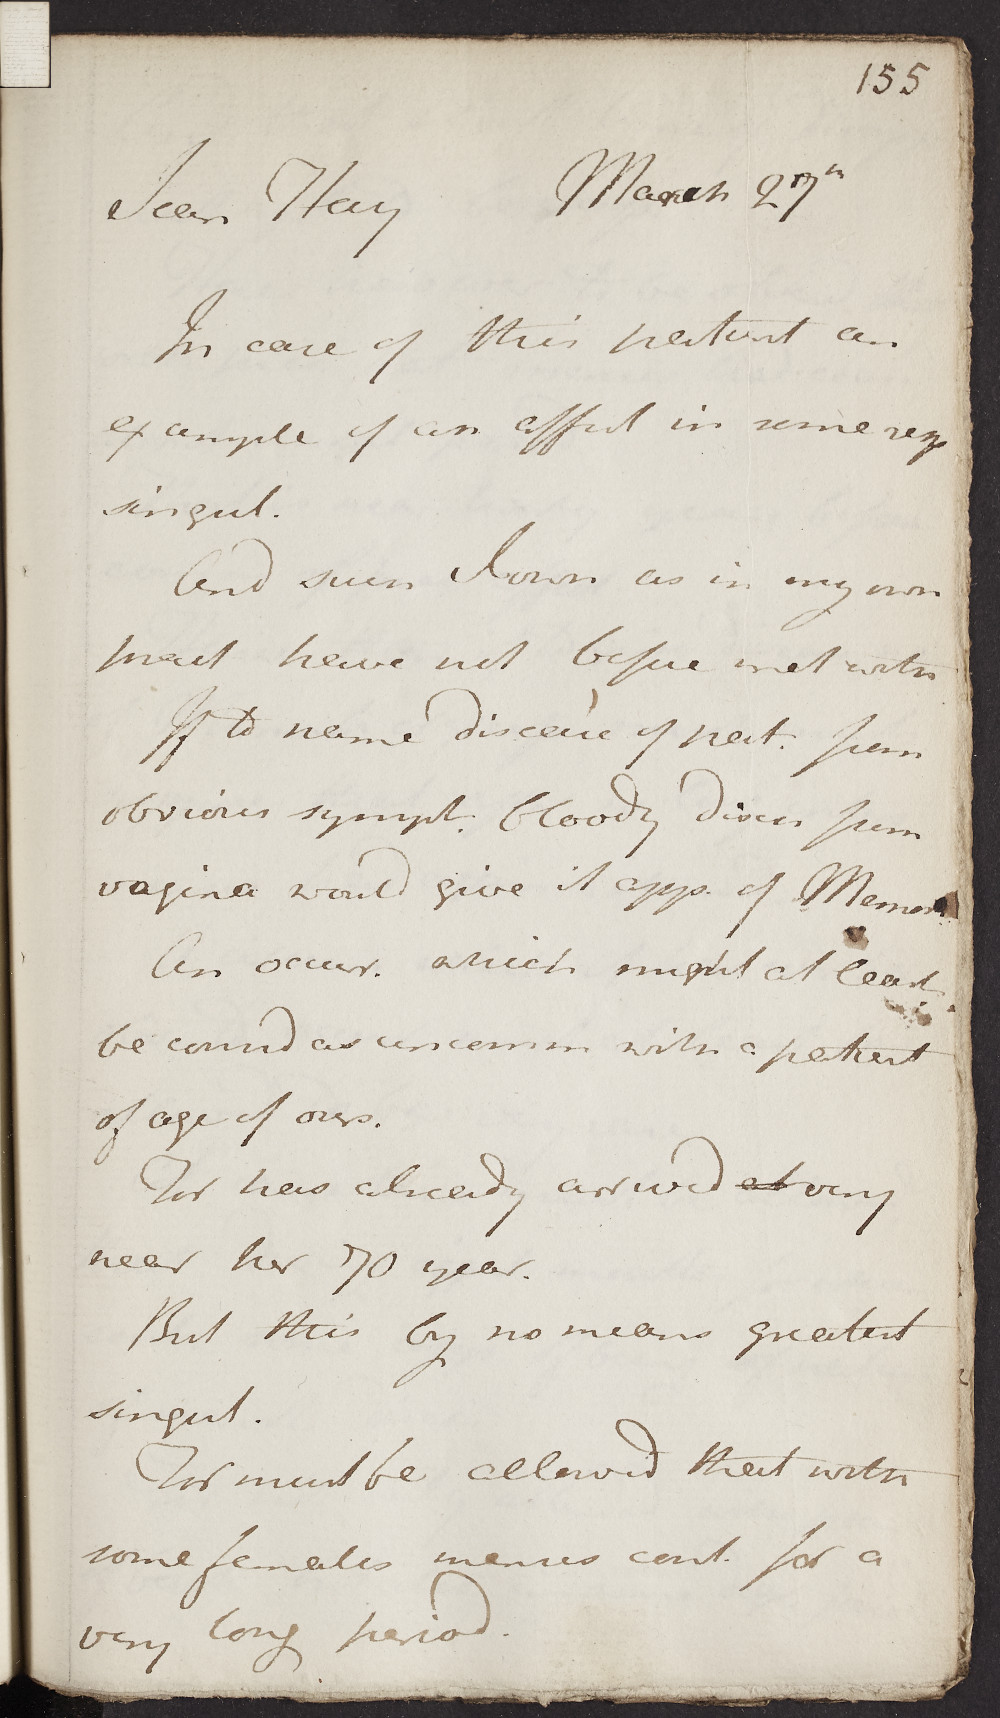 155
Jean Hay March 27th
In case of this patient an
example of an affect in some resp
singul.
And such I own as in my own
pract have not before met with
If to name disease of pat. from
obvious sympt. bloody disch from
vagina would give it app. of Menorr.
An occurr. which might at least
be considd as uncomm with a patient
of age of ours.
For has already arrived at very
near her 70 year.
But this by no means greatest
singul.
For must be allowed that with
some females menses cont. for a
very long period.